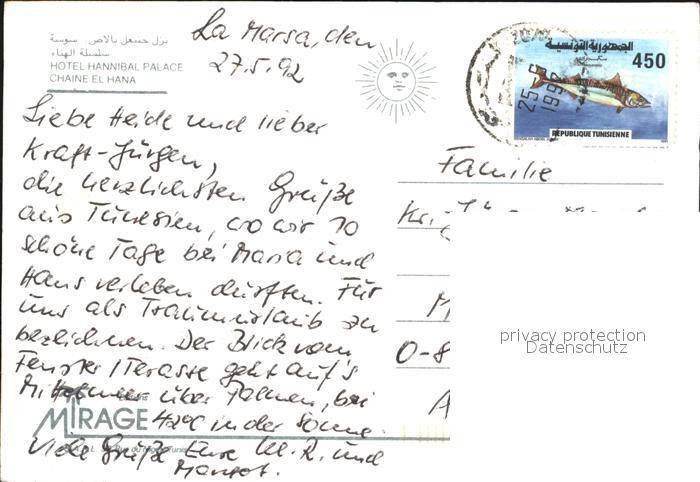 نزل حنبعل بالاص . سوسة
سلسلة الهناء
HOTEL HANNIBAL PALACE
CHAINE EL HANA
La Marsa, den
27.5.92
Liebe Heide und lieber
Kraft-Jürgen,
die herzlichsten Grüße
aus Tunesien, wo wir 10
schöne Tage bei Maria und
Hans verleben durften. Für
uns als Traumurlaub zu
bezeichnen. Der Blick vom
Fenster/Terasse geht auf's
Mittelmeer über Palmen, bei
42°C in der Sonne.
Viele Grüße Eure M. R. und
Margot.
MIRAGE
الجمهورية التونسية
450
REPUBLIQUE TUNISIENNE
25
1992
Familie
Kr
M
O-8
A
privacy protection
Datenschutz